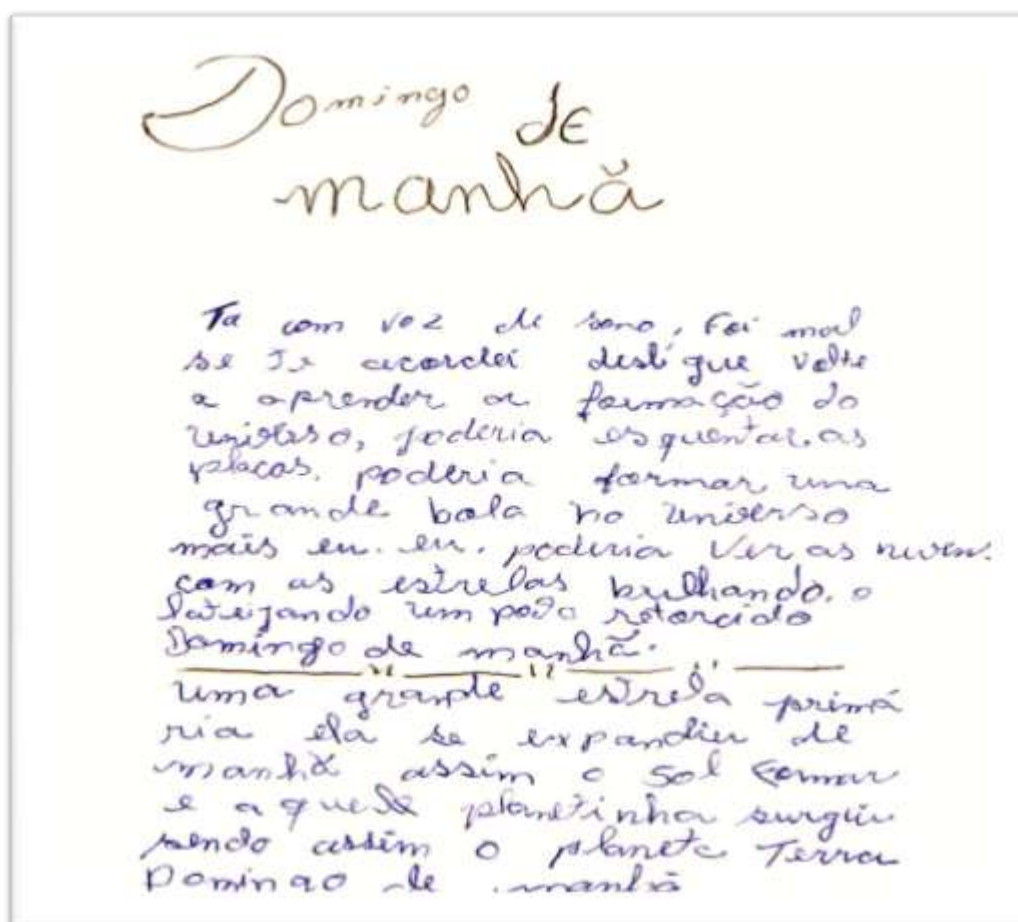 Domingo de
manhã
Ta com voz de sono, Foi mal
se Te acordei desligue volte
a aprender a formação do
universo, poderia esquentar. as
placas. poderia formar uma
grande bola no universo
mais eu. eu. poderia Ver as nuven.
com as estrelas brilhando. o
um retorcido
Domingo de manhã.
uma grande estrela primá
ria ela se expandiu de
manhã assim o Sol Formar
e aquele planetinha surgiu
sendo assim o planeta Terra
Domingo de manhã